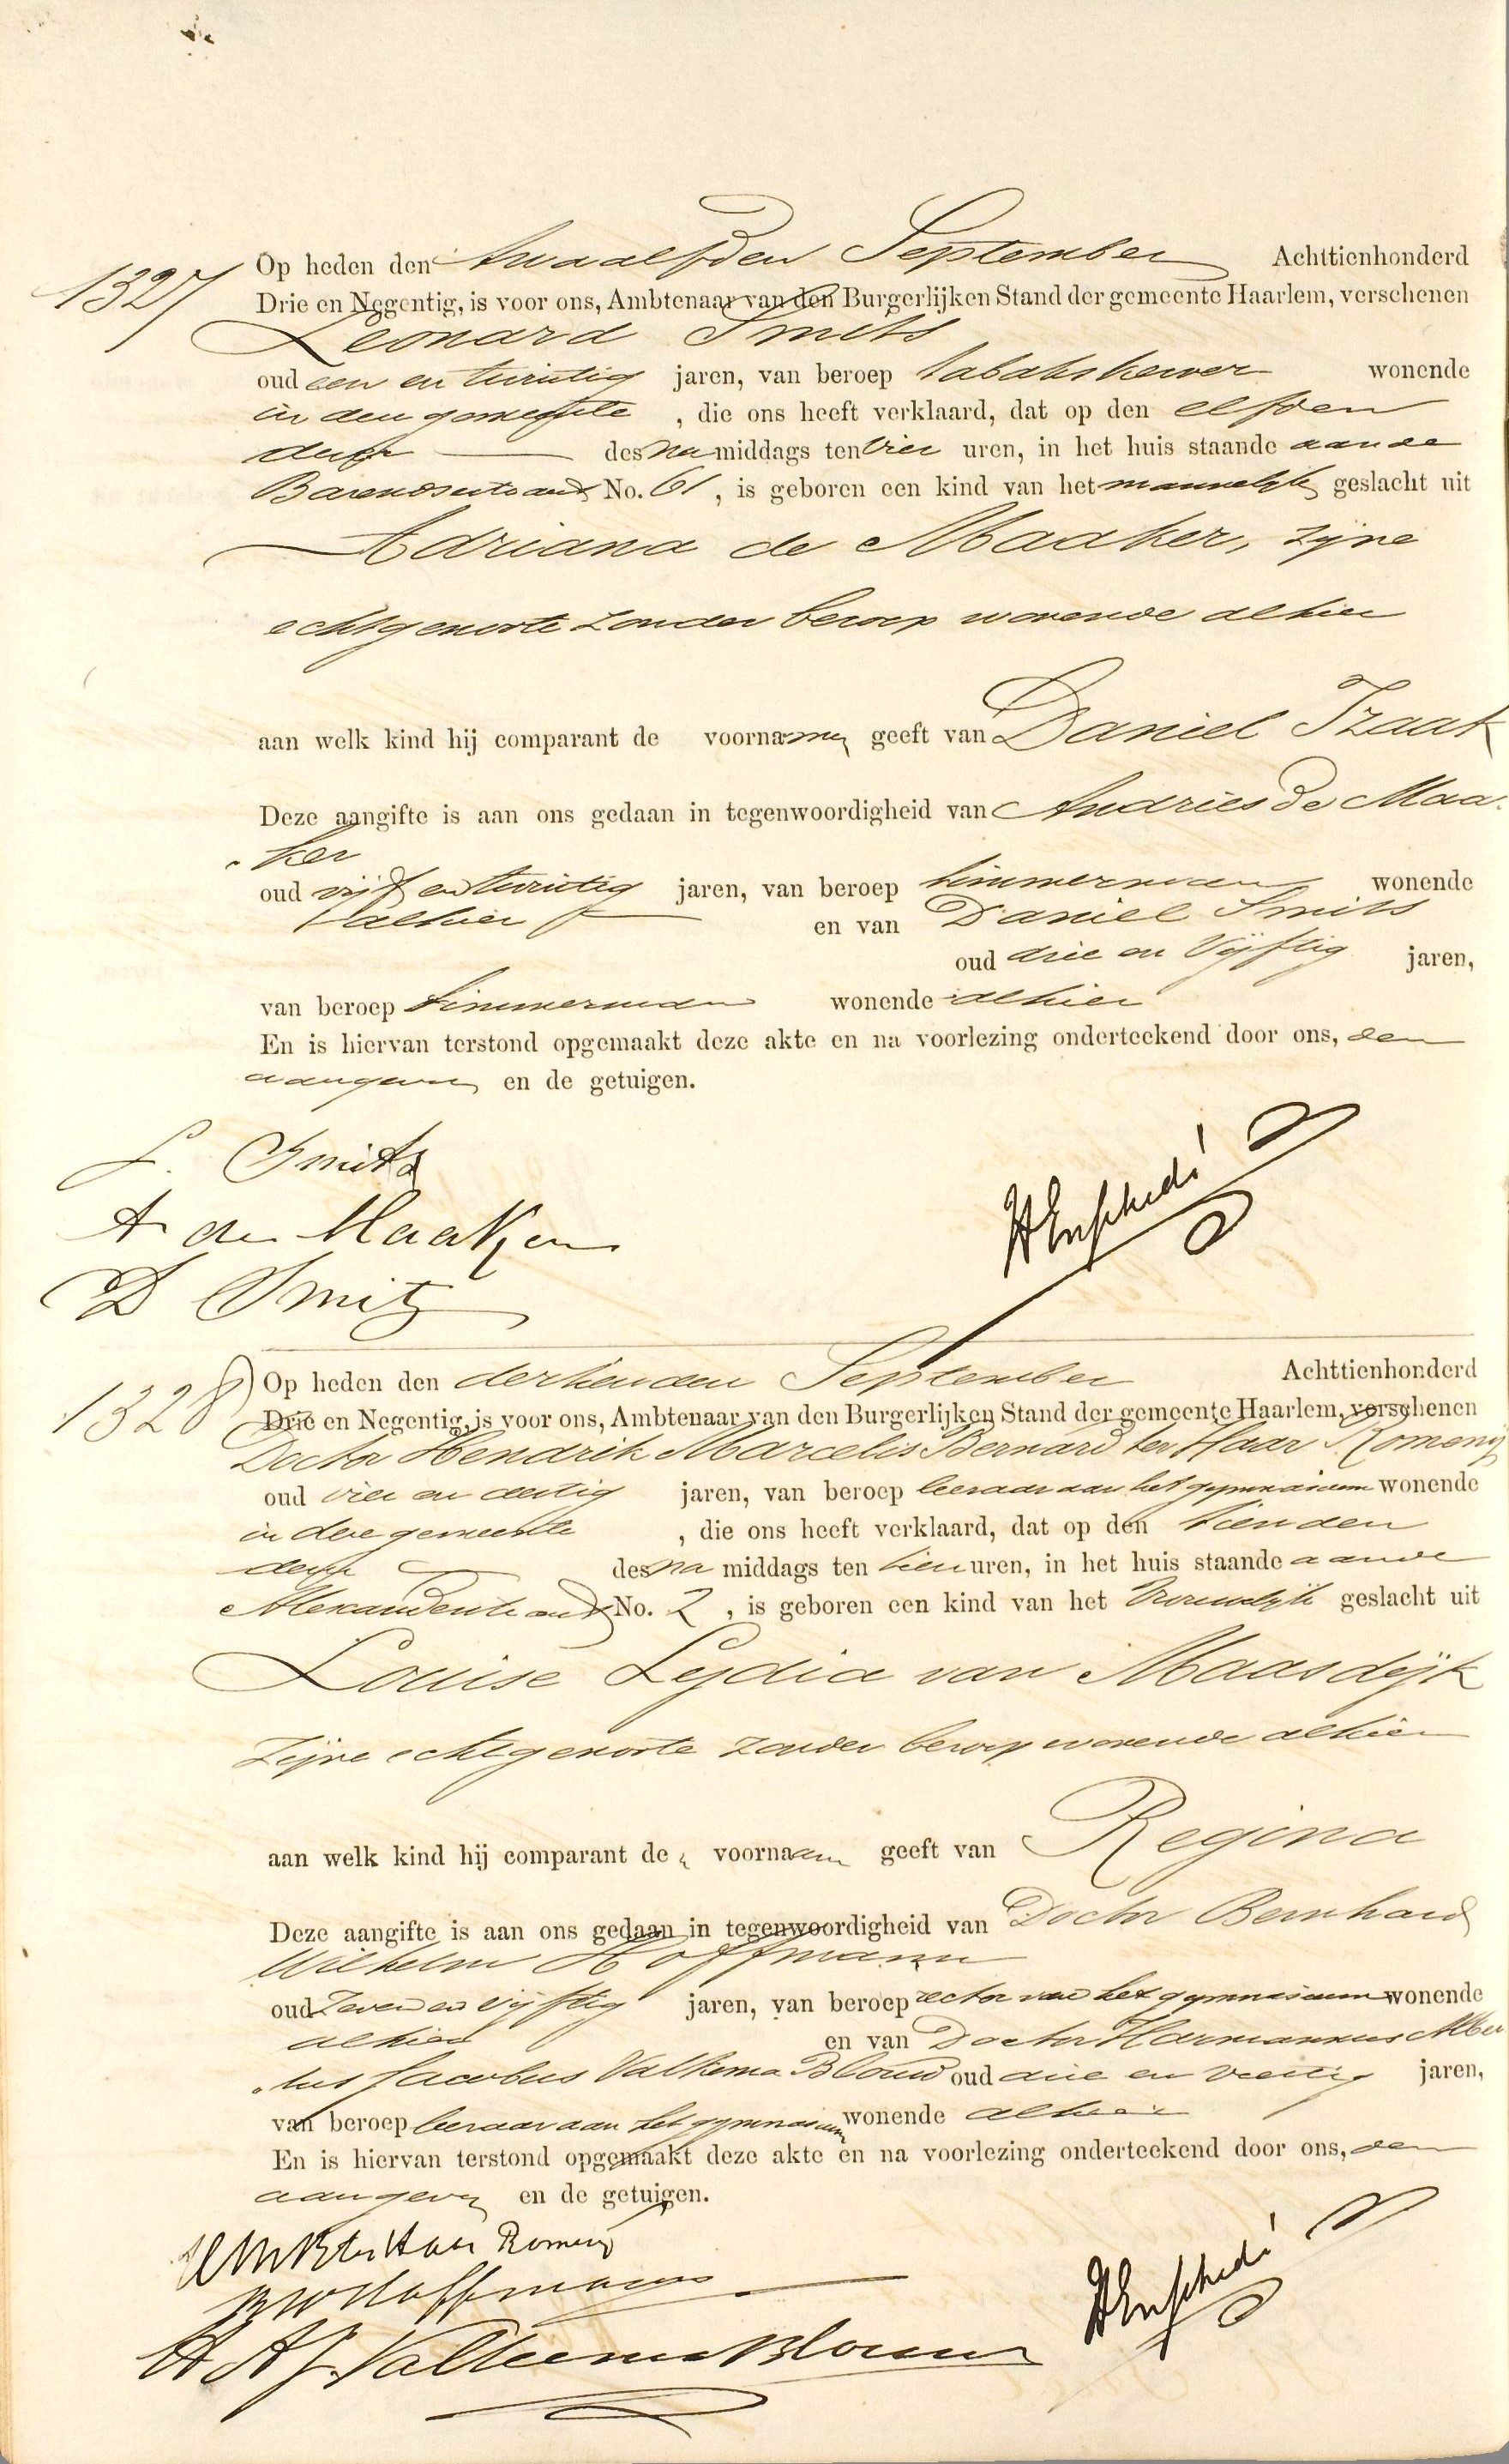 1327
Op heden den twaalfden September Achttienhonderd
Drie en Negentig, is voor ons, Ambtenaar van den Burgerlijken Stand der gemeente Haarlem, verschenen
Leonard Smits
oud een en twintig jaren, van beroep tabakskerver wonende
in deze gemeente, die ons heeft verklaard, dat op den elfden
dezer des na middags ten vier uren, in het huis staande aan de
Barendsestraat No. 61, is geboren een kind van het mannelijk geslacht uit
Adriana de Maaker, zijne
echtgenoote zonder beroep wonende alhier
aan welk kind hij comparant de voornamen geeft van Daniel Izaak
Deze aangifte is aan ons gedaan in tegenwoordigheid van Andries de Maa-
ker
oud vijf en twintig jaren, van beroep timmerman wonende
alhier en van Daniel Smits
oud drie en vijftig jaren,
van beroep timmerman wonende alhier
En is hiervan terstond opgemaakt deze akte en na voorlezing onderteekend door ons, den
aangever en de getuigen.
L. Smits
A de Maaker
D Smits
HEnschedé
1328
Op heden den dertienden September Achttienhonderd
Drie en Negentig, is voor ons, Ambtenaar van den Burgerlijken Stand der gemeente Haarlem, verschenen
Doctor Hendrik Marcelis Bernard ter Haar Romeny
oud vier en dertig jaren, van beroep leeraar aan het gymnasium wonende
in deze gemeente, die ons heeft verklaard, dat op den tienden
dezer des na middags ten tien uren, in het huis staande aan de
Alexanderstraat No. 2, is geboren een kind van het vrouwelijk geslacht uit
Louise Lydia van Maasdijk
zijne echtgenoote zonder beroep wonende alhier
aan welk kind hij comparant de voornaam geeft van Regina
Deze aangifte is aan ons gedaan in tegenwoordigheid van Doctor Bernhard
Wilhelm Hoffmann
oud zeven en vijftig jaren, van beroep rector van het gymnasium wonende
alhier en van Doctor Harmannus Alber
tus Jacobus Valkema Blouw oud drie en veertig jaren,
van beroep leeraar aan het gymnasium wonende alhier
En is hiervan terstond opgemaakt deze akte en na voorlezing onderteekend door ons, den
aangever en de getuigen.
HMB ter Haar Romeny
BWHoffmann
HAJ. Valkema Blouw
HEnschedé